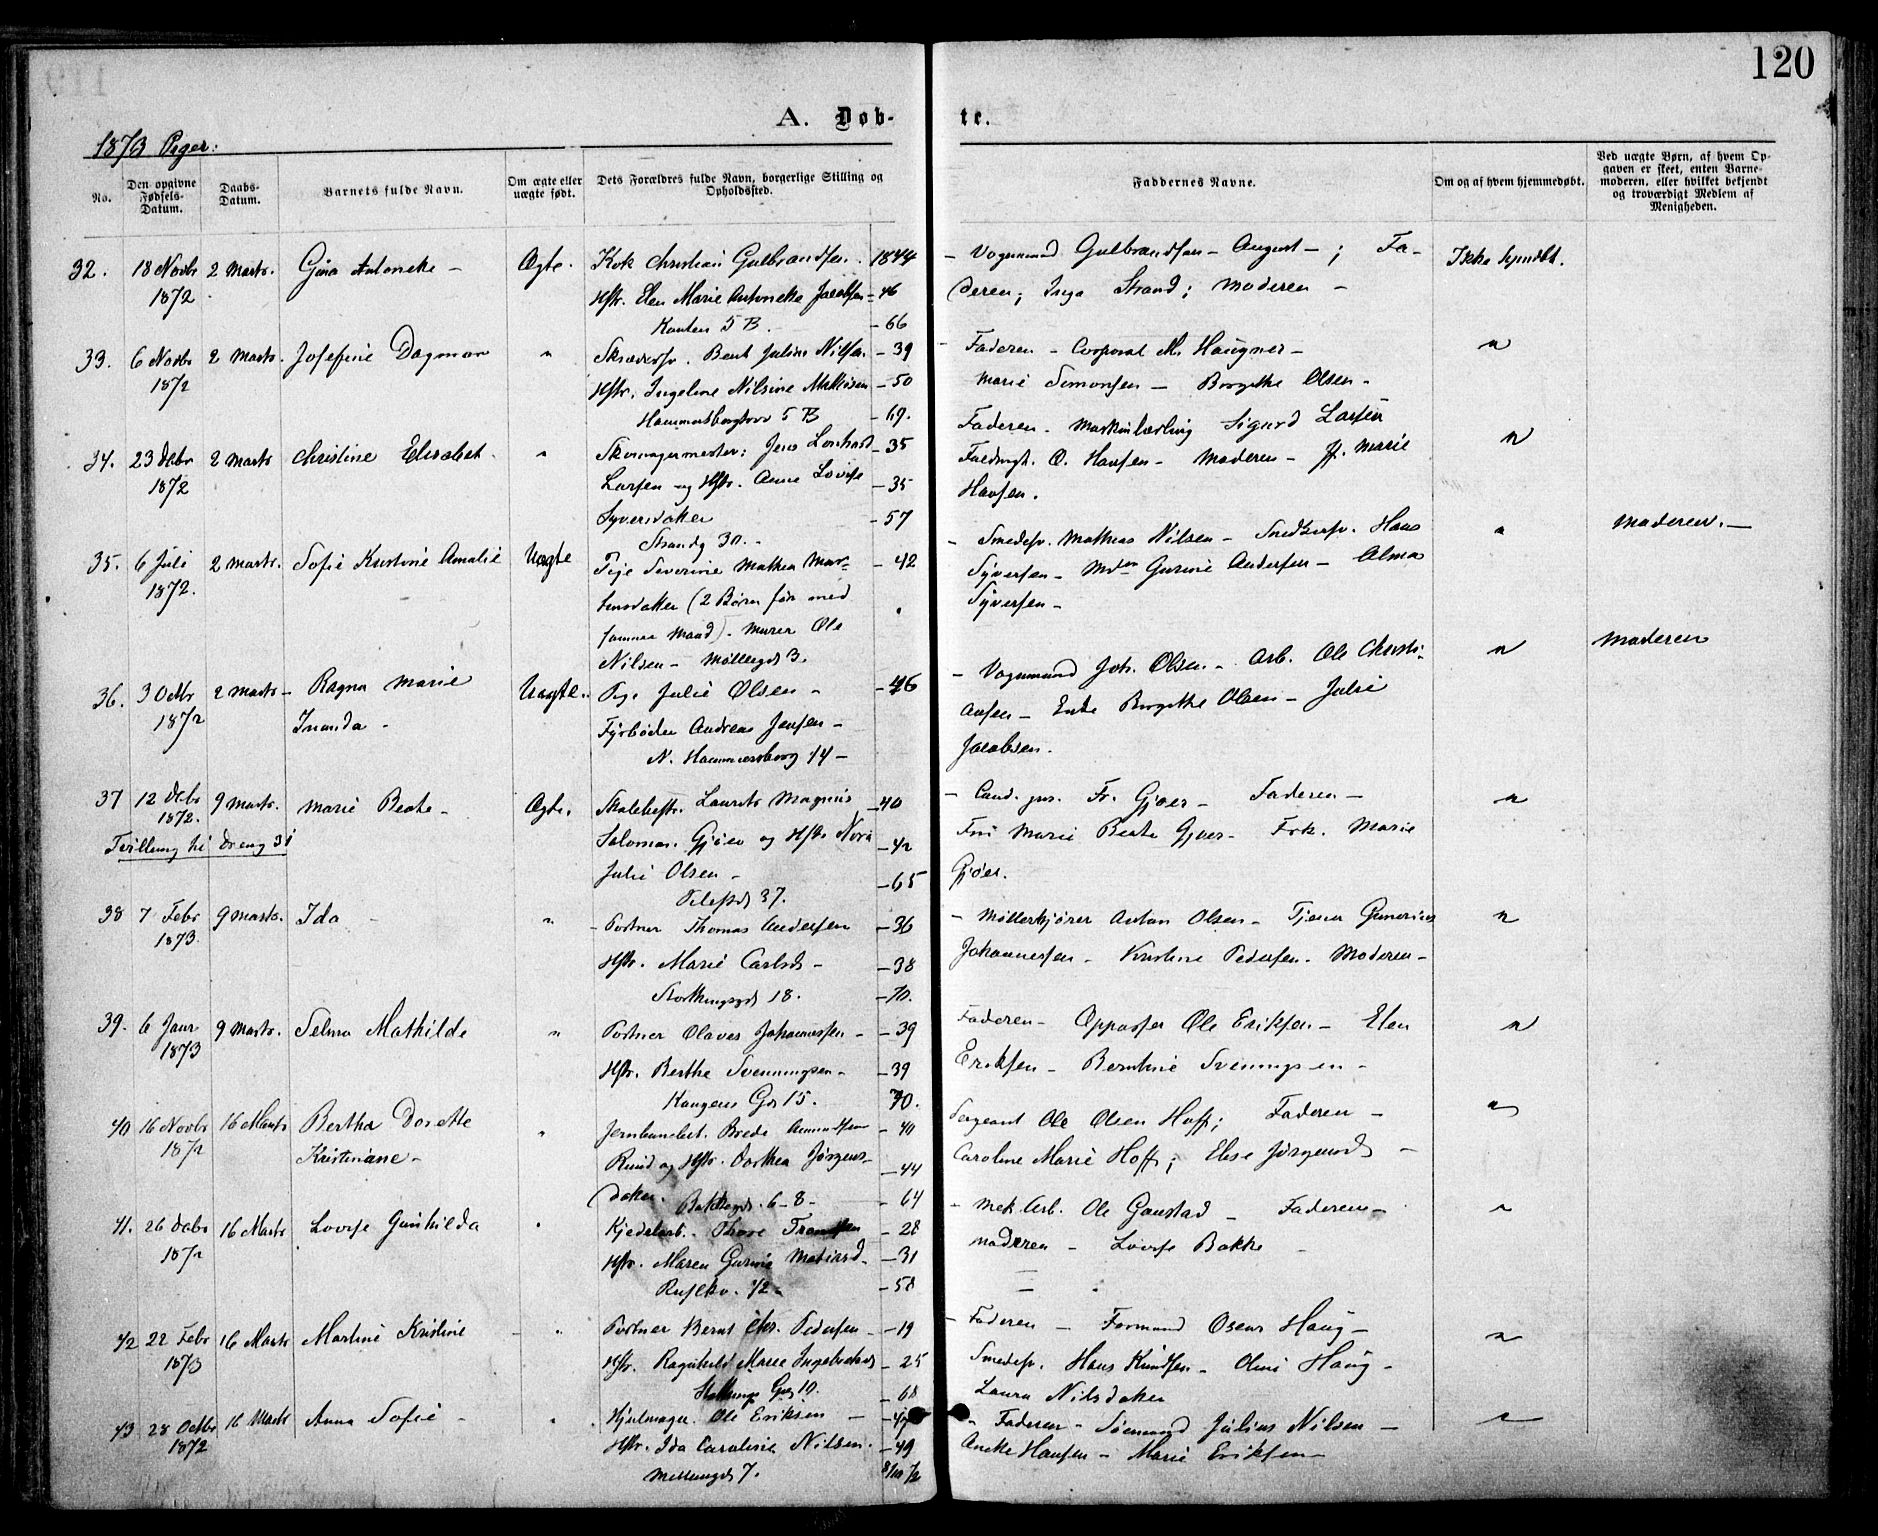 120
A. Døb-
te.
1873 Piger:
No.
Den opgivne Fødsels-Datum.
Daabs-Datum.
Barnets fulde Navn.
Om ægte eller uægte født.
Dets Forældres fulde Navn, borgerlige Stilling og Opholdssted.
Faddernes Navne.
Om og af hvem hjemmedøbt.
Ved uægte Børn, af hvem Op-
gaven er skeet, enten Barne-
moderen, eller hvilket bekjendt
og troværdigt Medlem af
Menigheden.
32. 18 Novbr 2 Marts. Gina Antoneke - Ægte. Kok Christian Gulbrandsen. 1844 - Vognmand Gulbrandsen - August - ; Fa- Ikke hjmdbt.
1872 Hstr. Elen Marie Antoneke Jacobsen - 46 deren; Inga Strand; Moderen -
5 B. - 66
33. 6 Novbr 2 Marts. Josefine Dagmar " Bent Julius Nilsen - 39 - Faderen - Corporal M. Haugner - "
1872 Hstr. Ingeline Nilsine - 50 Marie Simonsen - Borgethe Olsen -
Hammersborgtorv 5 B - 69. Faderen - Maskinlærling Sigurd Larsen
34. 23 Debr 2 Marts Christine Elisabet - " Skomagermester: Jens Lenhard - 35 O. Hansen - Moderen - Marie "
1872 Larsen og Hstr. Anne Lovise - 35 Hansen.
Syversdatter - 57
Strandg 30. - - Smedesv. Mathias Nilsen - Snedkersv. Hans " Moderen. -
35. 6 Juli 2 Marts. Sofie Kristine Amalie Uægte Pige Severine Mathea Mar- - 42 Syversen - Gurine Andersen - Alma
1872. tinsdatter (2 Børn før med Syversen -
samme Mand). Murer Ole
Nilsen - Møllergd 3. - Vognmand Joh. Olsen - Arb. Ole Christi- " Moderen
36. 3 Octbr 2 Marts - Ragna Marie Uægte. Pge Julie Olsen - - 46 ansen - Enke Borgethe Olsen - Julie
1872 Inanda - Fyrbøder Andreas Jensen - Jacobsen.
N. Hammersborg 14 -
37 12 Debr 9 Marts. Marie Beate - Ægte. Laurits Magnus - 40 - Cand. jur. Fr. Gjøer - Faderen - "
1872. Salomon Gjøer og Hstr. Nora - 42 Marie Beate Gjøer - Frk. Marie
Tvilling til Dreng 31 Julie Olsen - - 65 Gjøer.
Pilestd 37.
38 7 Febr 9 Marts. Ida - " - Portner Thomas Andersen - 36 - Møllerkjører Anton Olsen - Tjener Gunerius "
1873. Hstr. Marie Carlsd - - 38 Johannessen - Kristine Pedersen - Moderen -
Storthingsgd 18. - 70.
39. 6 Janr 9 Marts. Selma Mathilde " Portner Olaves Johannessen - - 39 Faderen - Oppasser Ole Eriksen - Elen "
1873 Hstr. Berthe Svenningsen - - 39 Eriksen - Berntine Svenningsen -
Kongens Gd 15. - 70.
40 16 Novbr 16 Marts Bertha Dorette " Brede Amundsen - 40 Sergeant Ole Olsen Hoff; Faderen - "
1872 Kristiane - Ruud og Hstr. Dorthea Jørgens- - 44 Caroline Marie Hoff; Elise Jørgensd -
datter. 6-8 - - 64
41. 26 Debr 16 Marts Lovise Gunhilda " Kjedelarb. Thore - 28 - Mek. Arb. Ole Gaustad - Faderen - "
1872 Hstr. Maren Gurine - 31 Moderen - Lovise Bakke -
- 58
42 22 Febr 16 Marts Martine Kristine - " Portner Bernt Chr. Pedersen - - 19 - Faderen - Formand Oscar Haug - "
1873 Hstr. Ragnhild Marie - 25 Smedesv. Hans Knudsen - Oline Haug -
Gd 10. - 68 Laura Nilsdatter
43 28 Octbr 16 Marts Anna Sofie - " Hjulmager. Ole Eriksen - " Faderen - Sømand Julius Nilsen - "
1872 Hstr. Ida Caroline Nilsen. - 49 Hansen - Marie Eriksen -
Mellemgd 7. 8/10 72